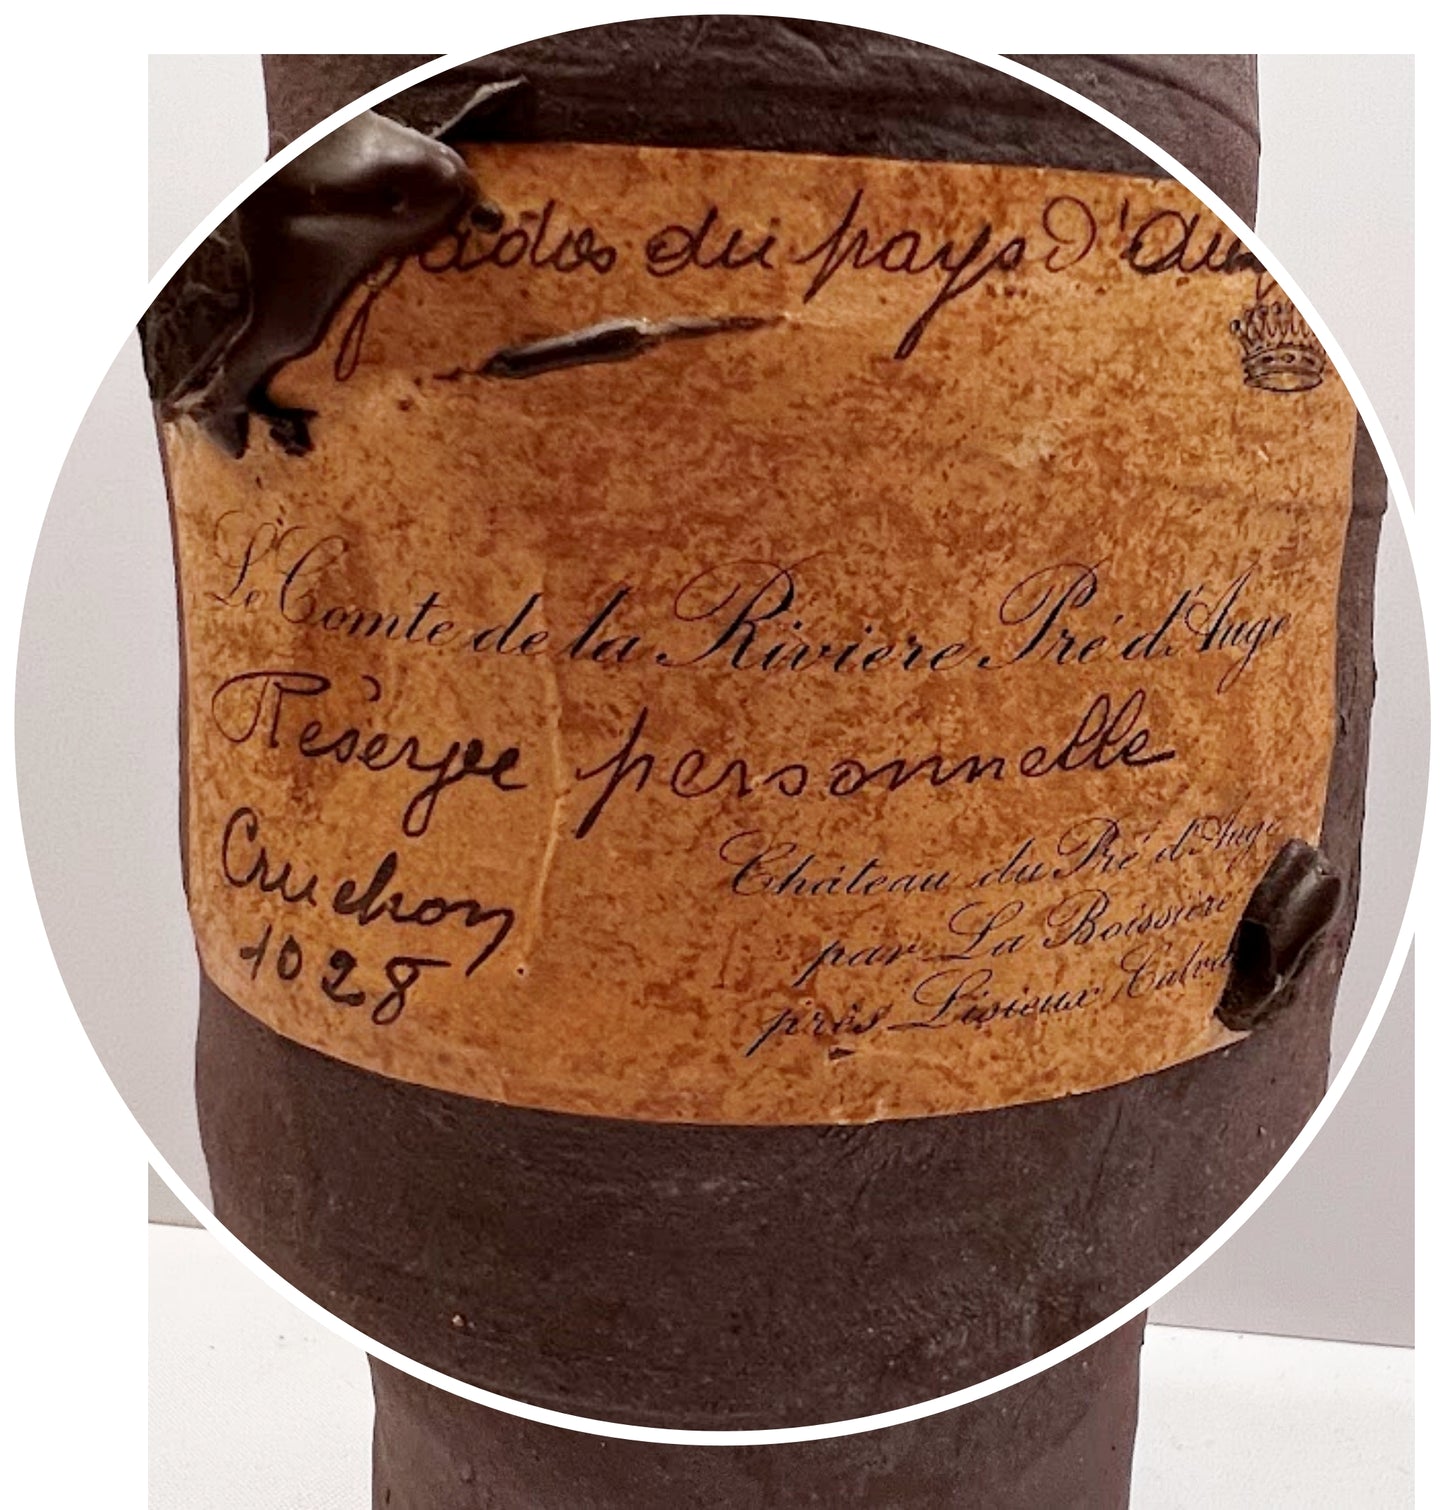 du pays d'Auge
Le Comte de la Rivière Pré d'Auge
Réserve personnelle
Cruchon
1028
Château du Pré d'Auge
par La Boissière
près Lisieux